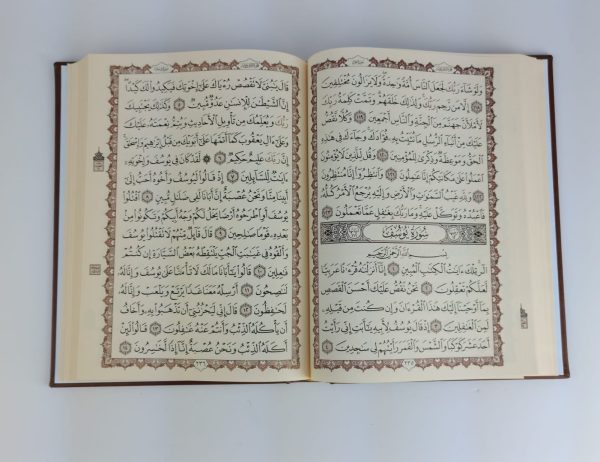 وَلَوْ شَآءَ رَبُّكَ لَجَعَلَ ٱلنَّاسَ أُمَّةً وَٰحِدَةً وَلَا يَزَالُونَ مُخْتَلِفِينَ
١١٨ إِلَّا مَن رَّحِمَ رَبُّكَ وَلِذَٰلِكَ خَلَقَهُمْ وَتَمَّتْ كَلِمَةُ رَبِّكَ
لَأَمْلَأَنَّ جَهَنَّمَ مِنَ ٱلْجِنَّةِ وَٱلنَّاسِ أَجْمَعِينَ ١١٩ وَكُلًّا نَّقُصُّ
عَلَيْكَ مِنْ أَنۢبَآءِ ٱلرُّسُلِ مَا نُثَبِّتُ بِهِۦ فُؤَادَكَ وَجَآءَكَ فِى هَٰذِهِ
ٱلْحَقُّ وَمَوْعِظَةٌ وَذِكْرَىٰ لِلْمُؤْمِنِينَ ١٢٠ وَقُل لِّلَّذِينَ لَا يُؤْمِنُونَ
ٱعْمَلُوا۟ عَلَىٰ مَكَانَتِكُمْ إِنَّا عَٰمِلُونَ ١٢١ وَٱنتَظِرُوٓا۟ إِنَّا مُنتَظِرُونَ
١٢٢ وَلِلَّهِ غَيْبُ ٱلسَّمَٰوَٰتِ وَٱلْأَرْضِ وَإِلَيْهِ يُرْجَعُ ٱلْأَمْرُ كُلُّهُۥ
فَٱعْبُدْهُ وَتَوَكَّلْ عَلَيْهِ وَمَا رَبُّكَ بِغَٰفِلٍ عَمَّا تَعْمَلُونَ ١٢٣
سُورَةُ يُوسُفَ
بِسْمِ ٱللَّهِ ٱلرَّحْمَٰنِ ٱلرَّحِيمِ
الٓر تِلْكَ ءَايَٰتُ ٱلْكِتَٰبِ ٱلْمُبِينِ ١ إِنَّآ أَنزَلْنَٰهُ قُرْءَٰنًا عَرَبِيًّا
لَّعَلَّكُمْ تَعْقِلُونَ ٢ نَحْنُ نَقُصُّ عَلَيْكَ أَحْسَنَ ٱلْقَصَصِ
بِمَآ أَوْحَيْنَآ إِلَيْكَ هَٰذَا ٱلْقُرْءَانَ وَإِن كُنتَ مِن قَبْلِهِۦ
لَمِنَ ٱلْغَٰفِلِينَ ٣ إِذْ قَالَ يُوسُفُ لِأَبِيهِ يَٰٓأَبَتِ إِنِّى رَأَيْتُ
أَحَدَ عَشَرَ كَوْكَبًا وَٱلشَّمْسَ وَٱلْقَمَرَ رَأَيْتُهُمْ لِى سَٰجِدِينَ ٤
٢٣٥
قَالَ يَٰبُنَىَّ لَا تَقْصُصْ رُءْيَاكَ عَلَىٰٓ إِخْوَتِكَ فَيَكِيدُوا۟ لَكَ كَيْدًا
إِنَّ ٱلشَّيْطَٰنَ لِلْإِنسَٰنِ عَدُوٌّ مُّبِينٌ ٥ وَكَذَٰلِكَ يَجْتَبِيكَ
رَبُّكَ وَيُعَلِّمُكَ مِن تَأْوِيلِ ٱلْأَحَادِيثِ وَيُتِمُّ نِعْمَتَهُۥ عَلَيْكَ
وَعَلَىٰٓ ءَالِ يَعْقُوبَ كَمَآ أَتَمَّهَا عَلَىٰٓ أَبَوَيْكَ مِن قَبْلُ إِبْرَٰهِيمَ وَإِسْحَٰقَ
إِنَّ رَبَّكَ عَلِيمٌ حَكِيمٌ ٦ ۞ لَّقَدْ كَانَ فِى يُوسُفَ وَإِخْوَتِهِۦٓ
ءَايَٰتٌ لِّلسَّآئِلِينَ ٧ إِذْ قَالُوا۟ لَيُوسُفُ وَأَخُوهُ أَحَبُّ إِلَىٰٓ
أَبِينَا مِنَّا وَنَحْنُ عُصْبَةٌ إِنَّ أَبَانَا لَفِى ضَلَٰلٍ مُّبِينٍ ٨ ٱقْتُلُوا۟
يُوسُفَ أَوِ ٱطْرَحُوهُ أَرْضًا يَخْلُ لَكُمْ وَجْهُ أَبِيكُمْ وَتَكُونُوا۟ مِنۢ
بَعْدِهِۦ قَوْمًا صَٰلِحِينَ ٩ قَالَ قَآئِلٌ مِّنْهُمْ لَا تَقْتُلُوا۟ يُوسُفَ
وَأَلْقُوهُ فِى غَيَٰبَتِ ٱلْجُبِّ يَلْتَقِطْهُ بَعْضُ ٱلسَّيَّارَةِ إِن كُنتُمْ
فَٰعِلِينَ ١٠ قَالُوا۟ يَٰٓأَبَانَا مَا لَكَ لَا تَأْمَ۫نَّا عَلَىٰ يُوسُفَ وَإِنَّا لَهُۥ
لَنَٰصِحُونَ ١١ أَرْسِلْهُ مَعَنَا غَدًا يَرْتَعْ وَيَلْعَبْ وَإِنَّا لَهُۥ
لَحَٰفِظُونَ ١٢ قَالَ إِنِّى لَيَحْزُنُنِىٓ أَن تَذْهَبُوا۟ بِهِۦ وَأَخَافُ
أَن يَأْكُلَهُ ٱلذِّئْبُ وَأَنتُمْ عَنْهُ غَٰفِلُونَ ١٣ قَالُوا۟ لَئِنْ
أَكَلَهُ ٱلذِّئْبُ وَنَحْنُ عُصْبَةٌ إِنَّآ إِذًا لَّخَٰسِرُونَ ١٤
٢٣٦